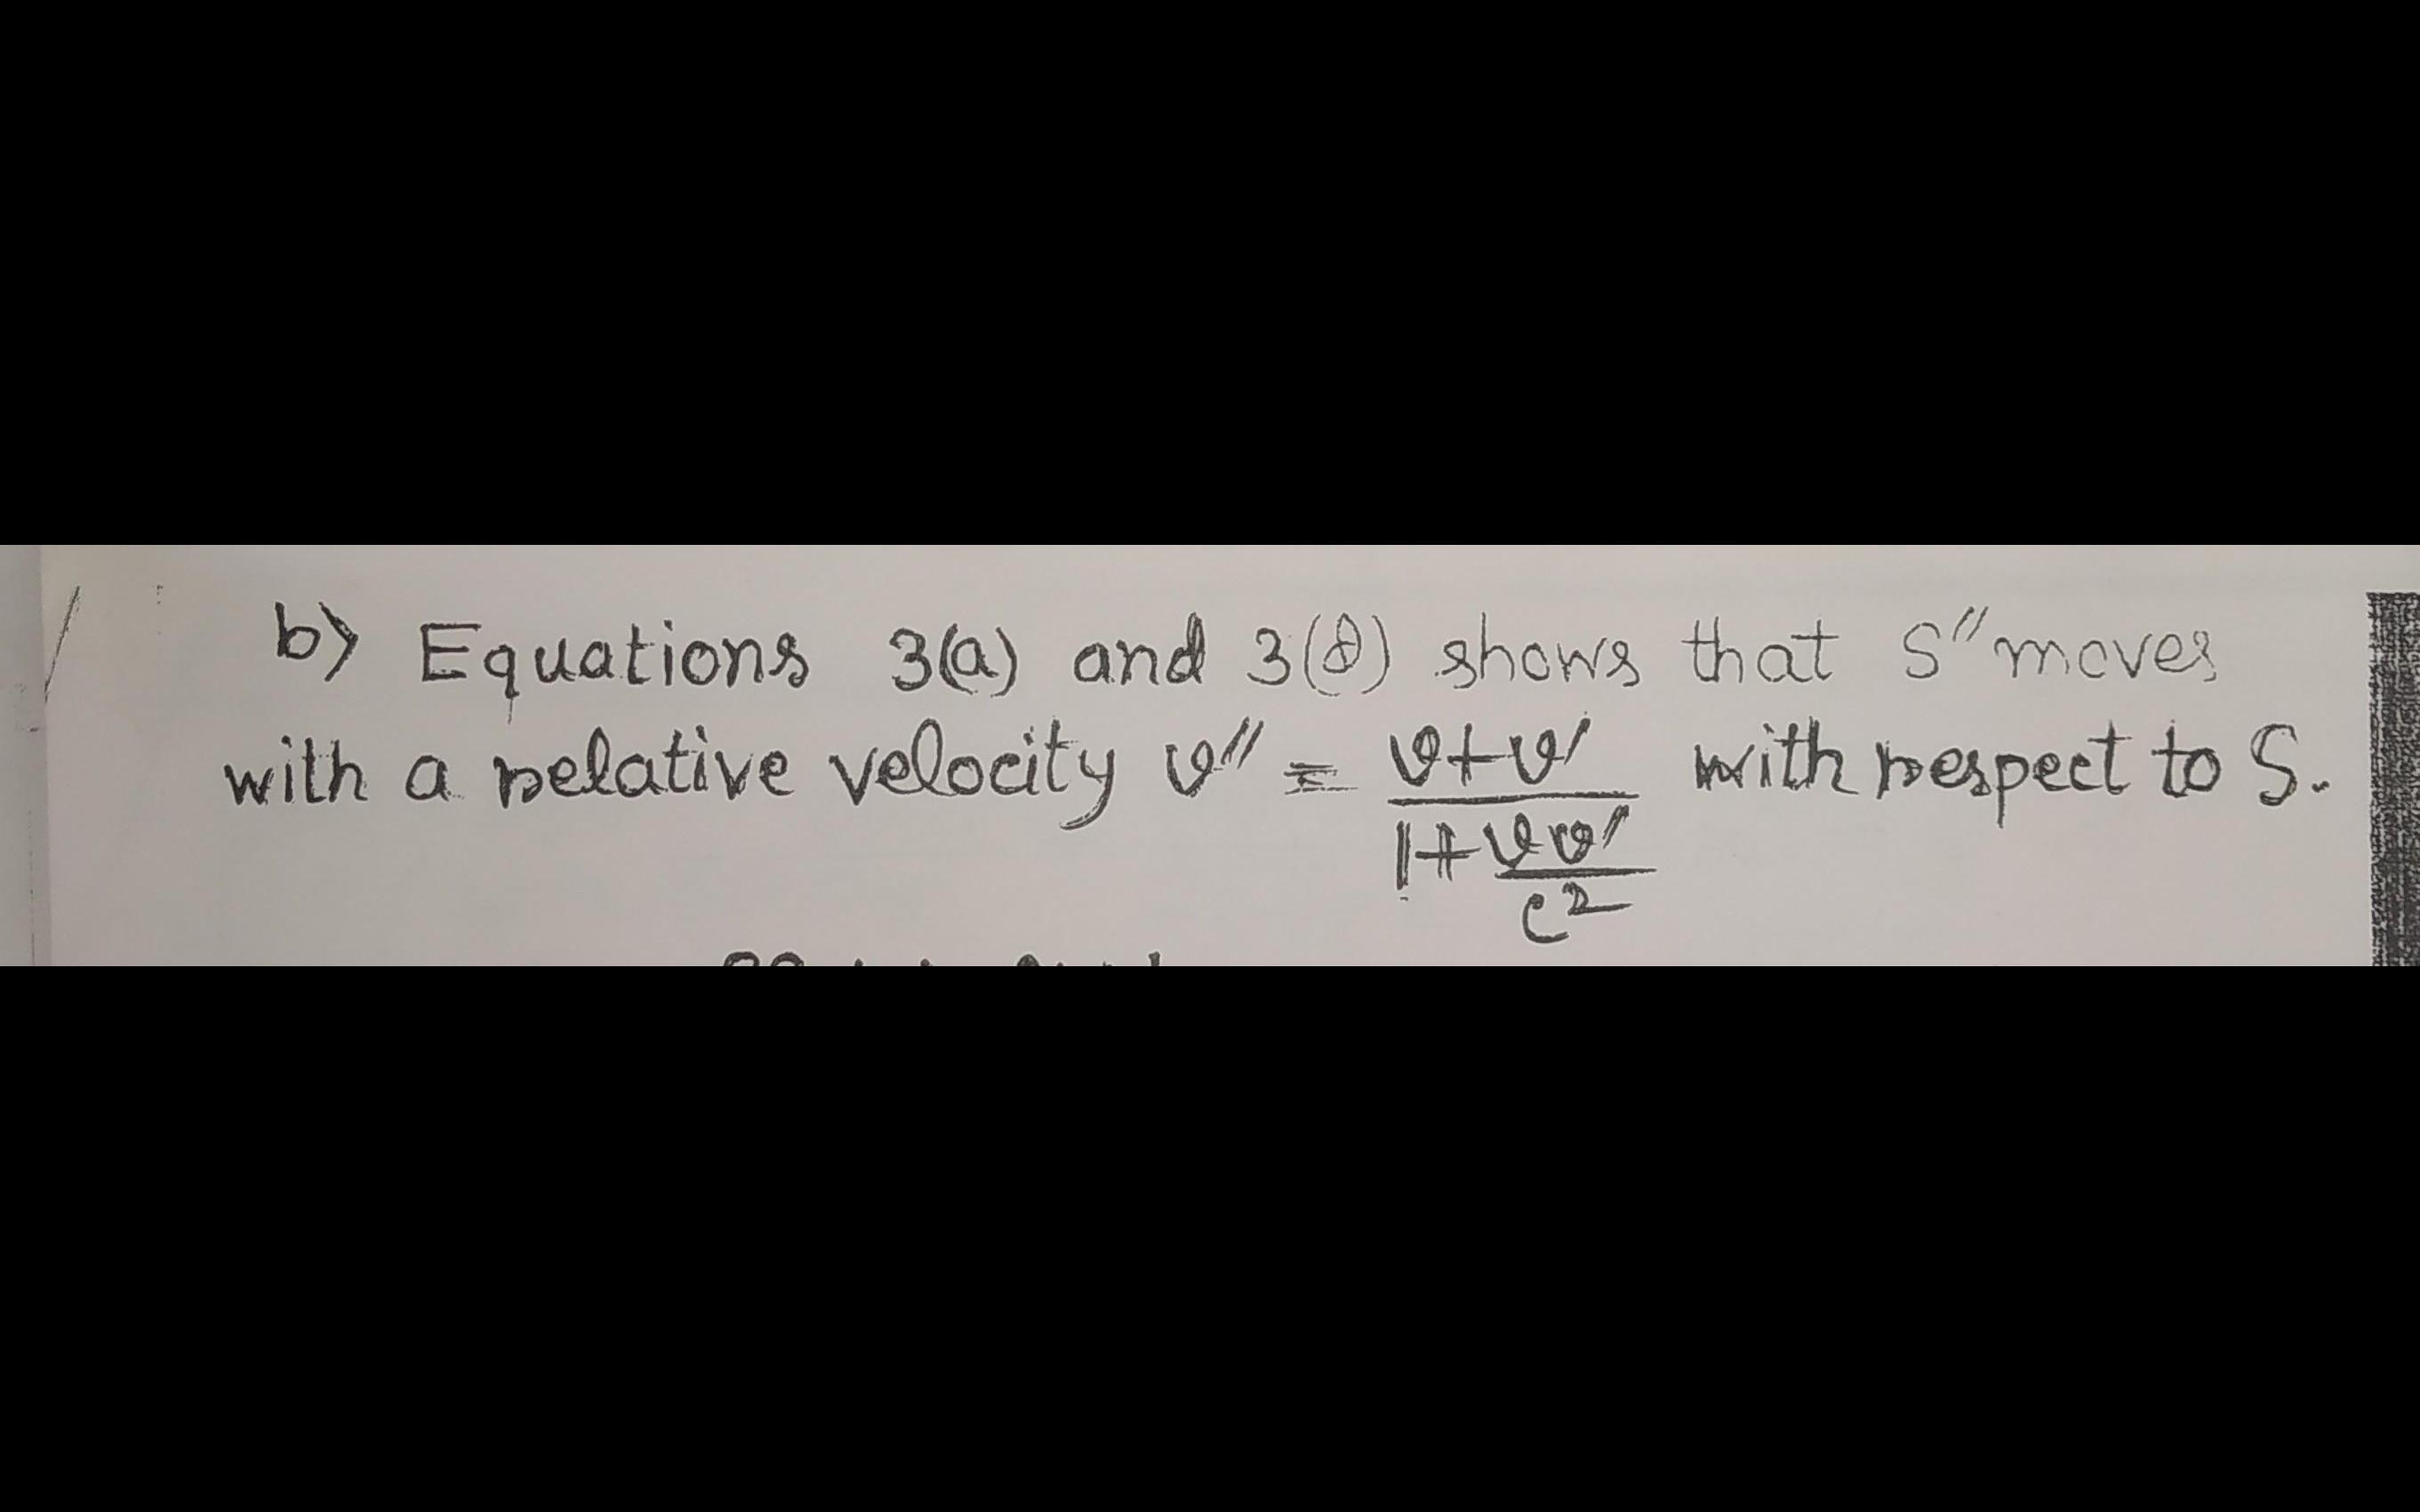 b) Equations 3(a) and 3(d) shows that S″ moves
with a relative velocity v″ = \frac{v+v′}{1+\frac{vv′}{c^2}} with respect to S.